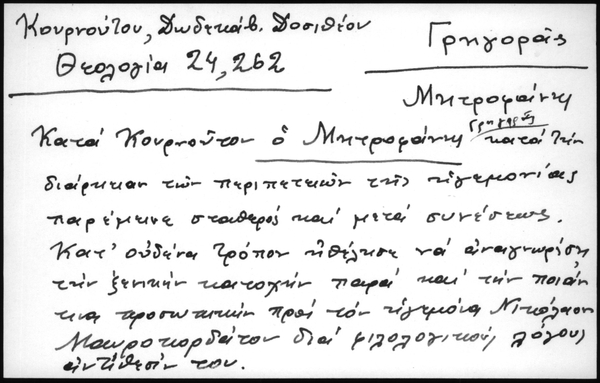 Κουρνούτου, Δωδεκάβ. Δοσιθέου
Θεολογία 24, 262
Γρηγοράς
Μητροφάνης
Κατά Κουρνοῦτον ὁ Μητροφάνης Γρηγοράς κατά τήν
διάρκειαν τῶν περιπετειῶν τῆς ἡγεμονίας
παρέμεινε σταθερός καί μετά συνέσεως.
Κατ' οὐδένα τρόπον ἠθέλησε νά ἀναγνωρίσῃ
τήν ξενικήν κατοχήν παρά καί τήν ποιάν
τινα προσωπικήν πρός τόν ἡγεμόνα Νικόλαον
Μαυροκορδάτον διά φιλολογικούς λόγους
ἀντίθεσίν του.